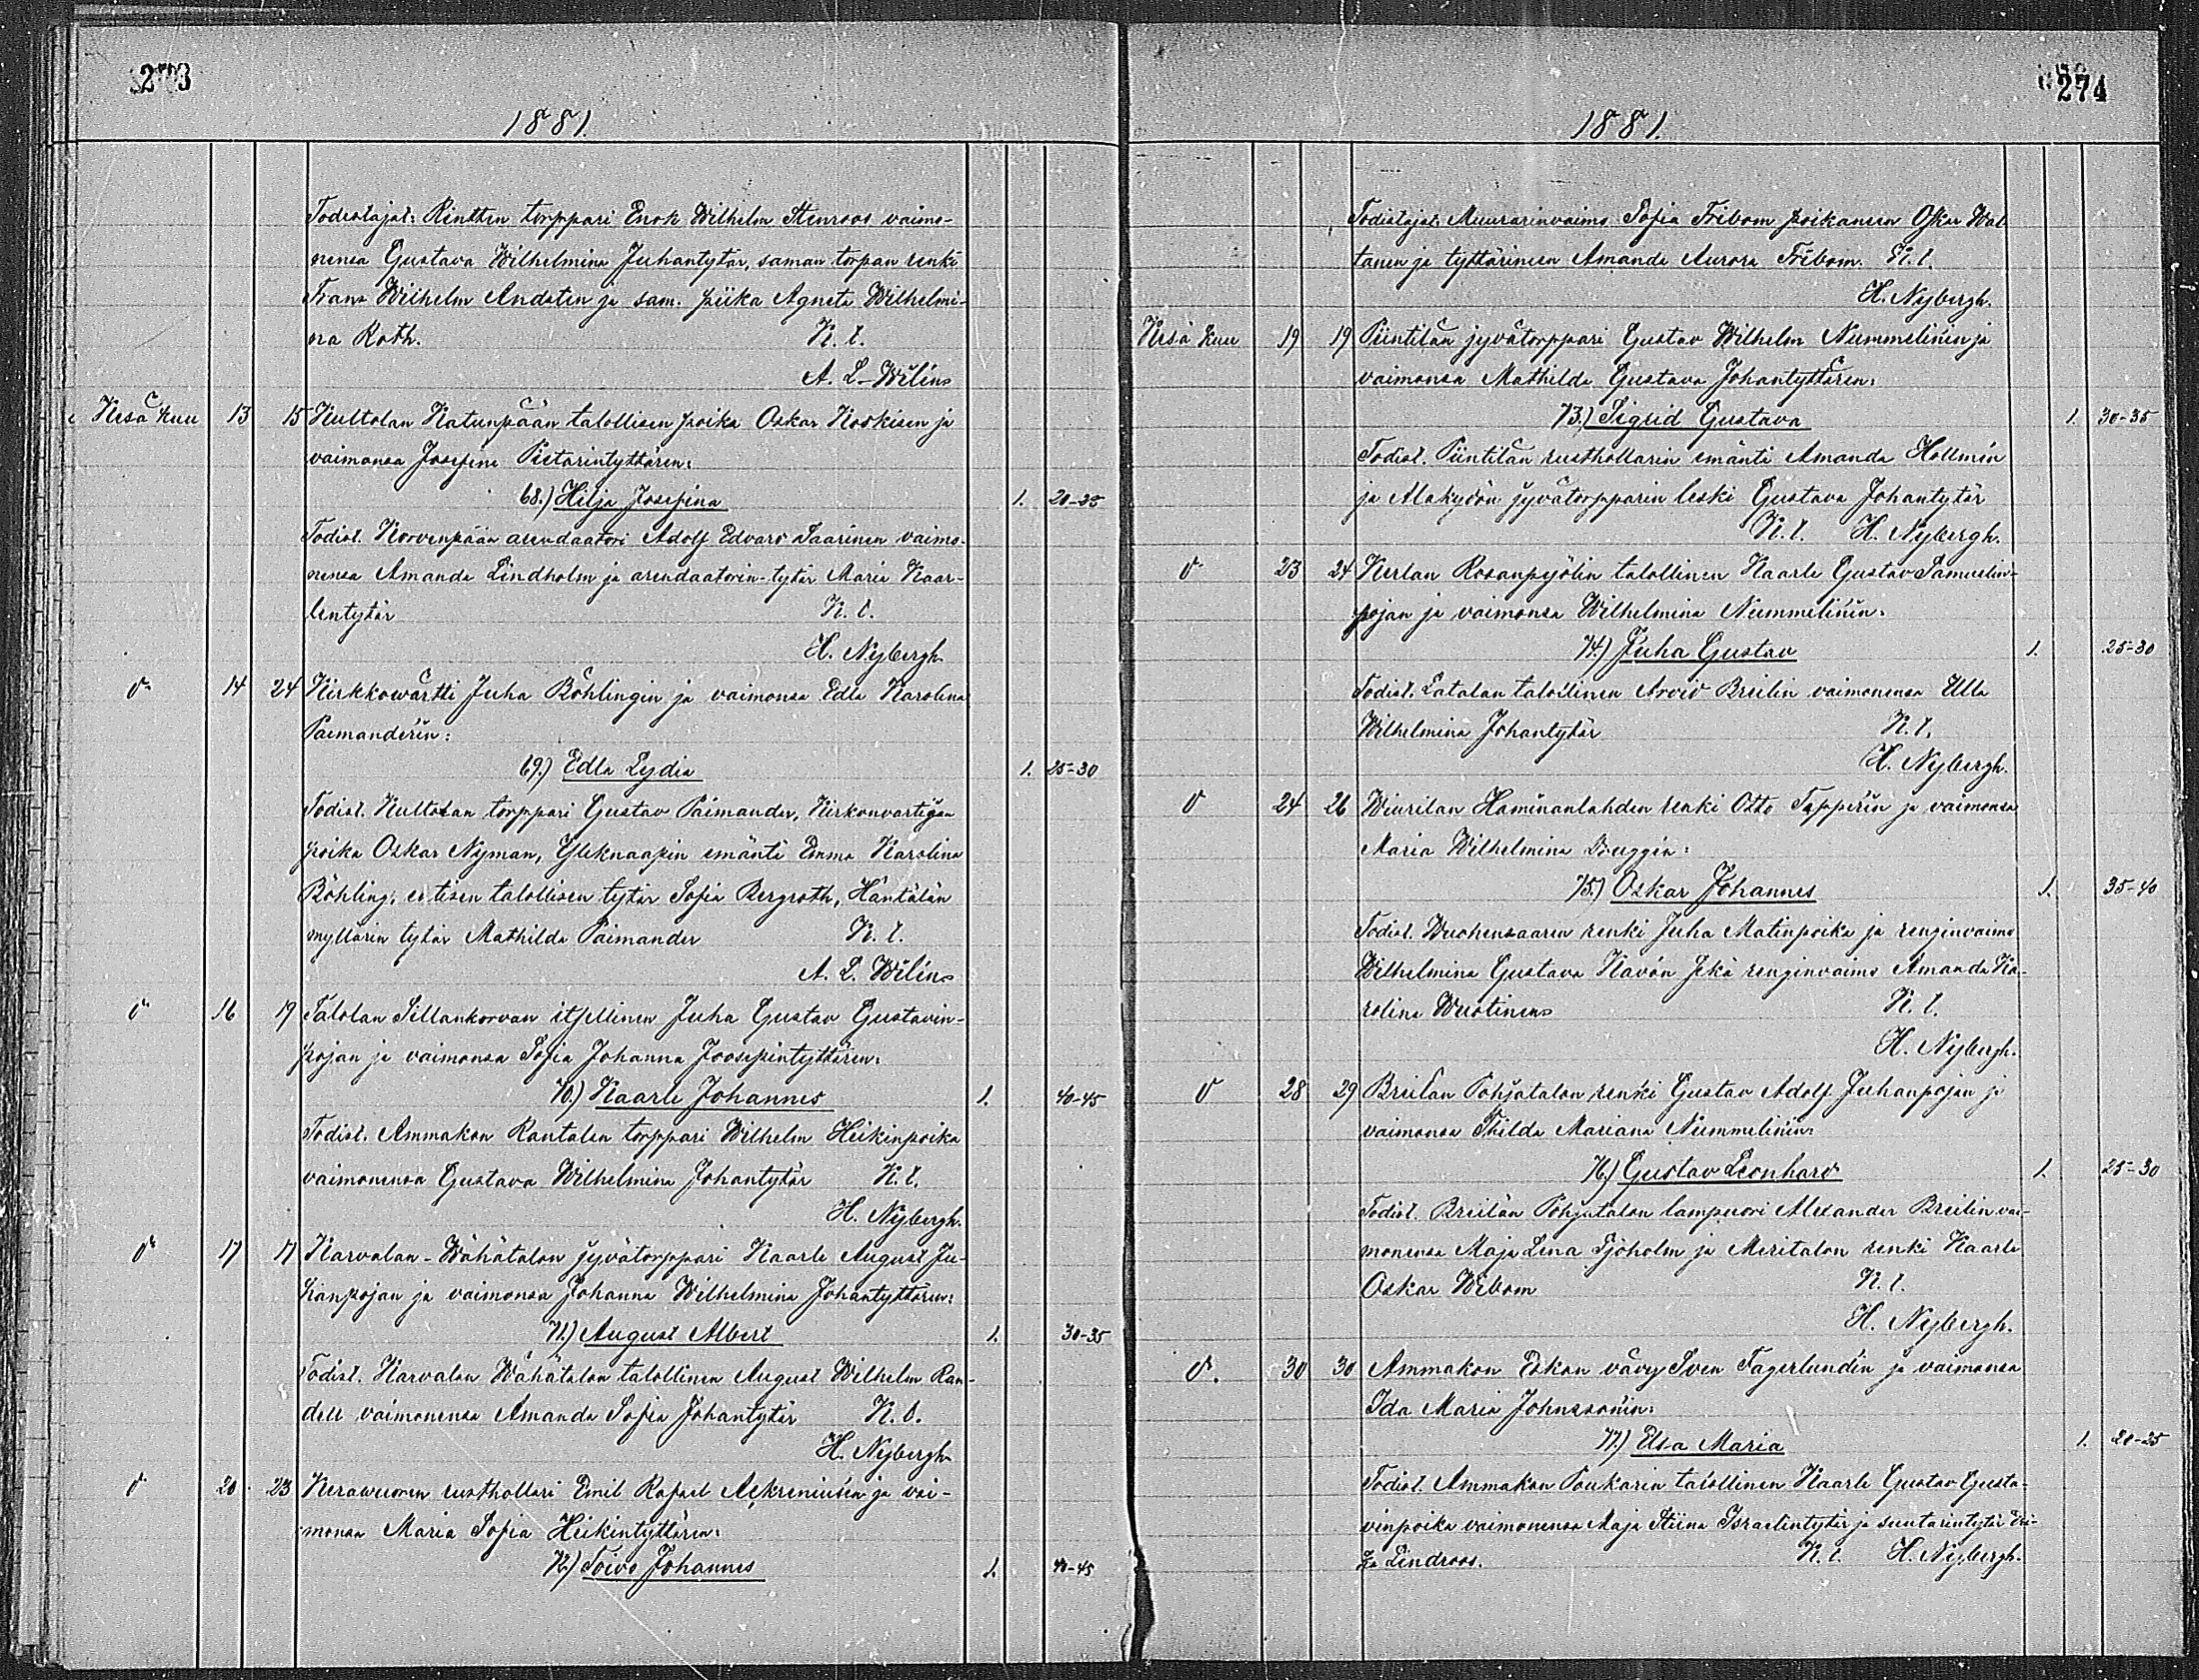 273
1881
Todistajat: Rintten torppari Enok Wilhelm Stenroos vaimo-
nensa Gustava Wilhelmina Juhantytär, saman torpan renki
Frans Wilhelm Andstin ja sam. piika Agneta Wilhelmi-
na Roth. K. l.
A. L. Wilins
Kesä kuu 13 15 Kultolan Katunpään talollisen poika Oskar Koskisen ja
vaimonsa Josefina Pietarintyttären:
68.) Hilja Josefina 1. 20-25
Todist. Korvenpään arendaatori Adolf Edvard Saarinen vaimo-
nensa Amanda Lindholm ja arendaatorin-tytär Maria Kaar-
lentytär K. l.
H. Nybergh.
14 24 Kirkkowärtti Juha Böhlingin ja vaimonsa Edla Karolina
Paimander'in:
69.) Edla Lydia 1. 25-30
Todist. Kultolan torppari Gustav Paimander, Kirkonvartijan
poika Oskar Nyman, Yleknaapin emäntä Emma Karolina
Böhling, entisen talollisen tytär Sofia Bergroth, Häntälän
myllärin tytär Mathilda Paimander K. l.
A. L. Wilins
16 19 Talolan Sillankorvan itsellinen Juha Gustav Gustavin-
pojan ja vaimonsa Sofia Johanna Joosepintyttären:
70.) Kaarle Johannes 1. 40-45
Todist. Ammakon Rantalan torppari Wilhelm Heikinpoika
vaimonensa Gustava Wilhelmina Johantytär K. l.
H. Nybergh.
17 17 Karvalan-Wähätalon jyvätorppari Kaarle August Ju-
hanpojan ja vaimonsa Johanna Wilhelmina Johantyttären:
71.) August Albert 1. 30-35
Todist. Karvalan Wähätalon talollinen August Wilhelm Ran-
dell vaimonensa Amanda Sofia Johantytär K. l.
H. Nybergh
20 23 Kerawuoren rusthollari Emil Rafael Ackrenius'en ja vai-
monsa Maria Sofia Heikintyttären:
72.) Toivo Johannes 1. 40-45
274
1881.
Todistajat: Muurarinvaimo Sofia Fribom poikansen Oskar Wal
tanen ja tyttärineen Amanda Aurora Fribom. K. l.
H. Nybergh.
Kesä kuu 19 19 Piintilän jyvätorppari Gustav Wilhelm Nummelin'in ja
vaimonsa Mathilda Gustava Johantyttären:
73.) Sigrid Gustava 1. 30-35
Todist. Piintilän rusthollarin emäntä Amanda Hollmén
ja Alakydön jyvätorpparin leski Gustava Johantytär
K. l. H. Nybergh.
23 24 Kerlan Rosanpyölin talollinen Kaarle Gustav Samuelin-
pojan ja vaimonsa Wilhelmina Nummelin'in:
74.) Juha Gustav 1. 25-30
Todist. Latalan talollinen Arvid Breilin vaimonensa Ulla
Wilhelmina Johantytär K. l.
H. Nybergh.
24 26 Wiurilan Haminanlahden renki Otto Tapper'in ja vaimonsa
Maria Wilhelmina Brugg'in:
75.) Oskar Johannes 1. 35-40
Todist. Wuohensaaren renki Juha Matinpoika ja renginvaimo
Wilhelmina Gustava Kavón sekä renginvaimo Amanda Ka-
rolina Wuotinen K. l.
H. Nybergh.
28 29 Breilan Pohjatalon renki Gustav Adolf Juhanpojan ja
vaimonsa Thilda Mariana Nummelin'in:
76.) Gustav Leonhard 1. 25-30
Todist. Breilän Pohjatalon lampuori Alexander Breilin vai-
monensa Maja Lena Sjöholm ja Meritalon renki Kaarle
Oskar Wibom K. l.
H. Nybergh.
30 30 Ammakon Eskon vävy Sven Fagerlund'in ja vaimonsa
Ida Maria Johnsson'in:
77.) Elsa Maria 1. 20-25
Todist. Ammakon Poukarin talollinen Kaarle Gustav Gusta-
vinpoika vaimonensa Maja Stiina Israelintytär ja suutarintytär
Lindroos. K. l. H. Nybergh.